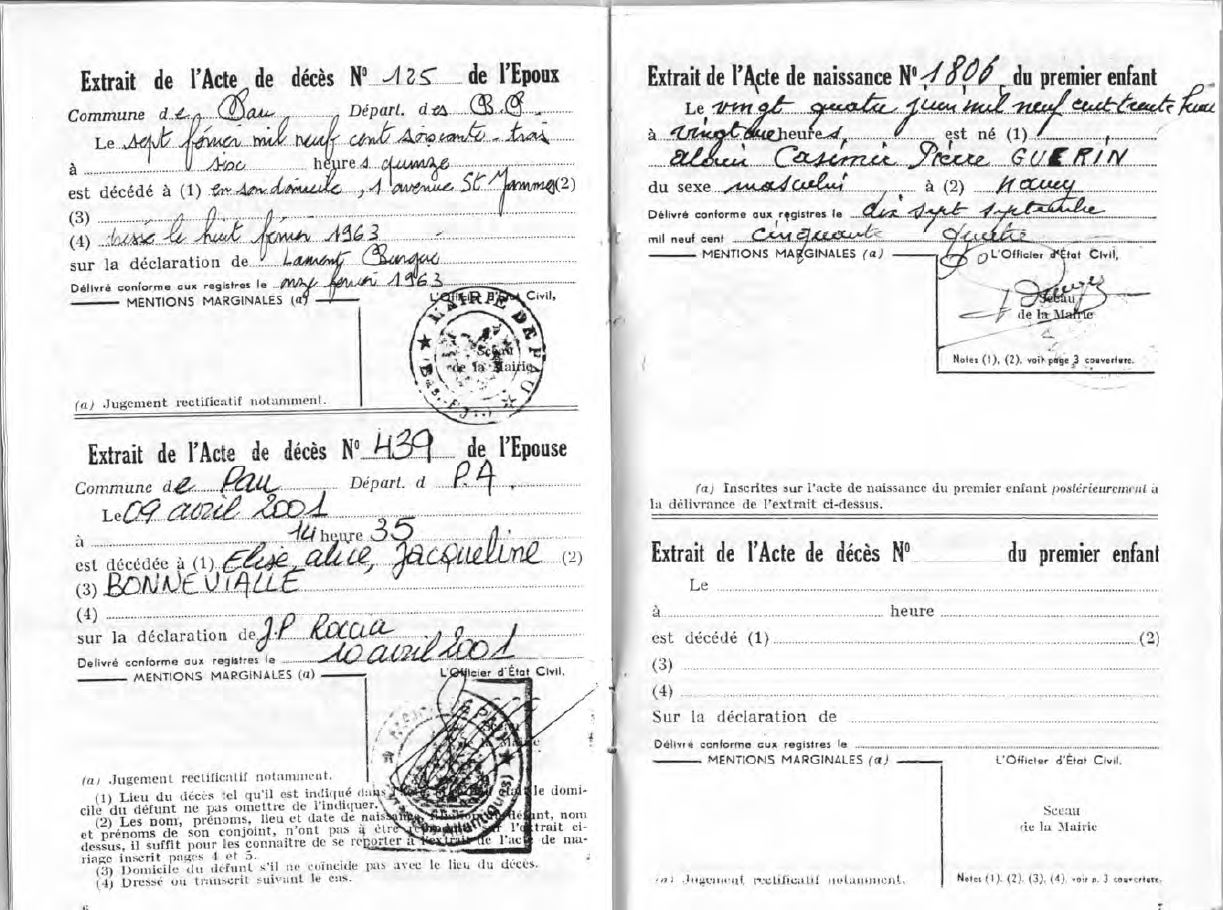 Extrait de l'Acte de décès N° 125 de l'Epoux
Commune de Pau Départ. des B.P.
Le sept février mil neuf cent soixante-trois
à six heures quinze
est décédé à (1) en son domicile, 1 avenue St (2)
(3)
(4) dressé le huit février 1963
sur la déclaration de Laurent
Délivré conforme aux registres le onze février 1963
MENTIONS MARGINALES (a)
L'Officier d'Etat Civil,
MAIRIE DE PAU
Sceau
de la Mairie
(a) Jugement rectificatif notamment.
Extrait de l'Acte de décès N° 439 de l'Epouse
Commune de Pau Départ. d P.A
Le 09 avril 2001
à 14 heure 35
est décédée à (1) Elise, alice, Jacqueline (2)
(3) BONNEVIALLE
(4)
sur la déclaration de J.P Roccia
Délivré conforme aux registres le 10 avril 2001
MENTIONS MARGINALES (a)
L'Officier d'État Civil.
(a) Jugement rectificatif notamment.
(1) Lieu du décès tel qu'il est indiqué dans le domi-
cile du défunt ne pas omettre de l'indiquer.
(2) Les nom, prénoms, lieu et date de naissance, défunt, nom
et prénoms de son conjoint, n'ont pas à être l'extrait ci-
dessus, il suffit pour les connaître de se reporter à l'extrait de l'acte de ma-
riage inscrit pages 4 et 5.
(3) Domicile du défunt s'il ne coïncide pas avec le lieu du décès.
(4) Dressé ou transcrit suivant le cas.
6
Extrait de l'Acte de naissance N° 1806 du premier enfant
Le vingt quatre juin mil neuf cent trente huit
à vingt deux heures, est né (1)
alain Casimir Pierre GUERIN
du sexe masculin à (2) nancy
Délivré conforme aux registres le dix sept septembre
mil neuf cent cinquante quatre
MENTIONS MARGINALES (a)
L'Officier d'État Civil,
Sceau
de la Mairie
Notes (1), (2), voir page 3 couverture.
(a) Inscrites sur l'acte de naissance du premier enfant postérieurement à
la délivrance de l'extrait ci-dessus.
Extrait de l'Acte de décès N° du premier enfant
Le
à heure
est décédé (1) (2)
(3)
(4)
Sur la déclaration de
Délivré conforme aux registres le
MENTIONS MARGINALES (a)
L'Officier d'État Civil.
Sceau
de la Mairie
(a) Jugement rectificatif notamment.
Notes (1), (2), (3), (4), voir p. 3 couverture.
7